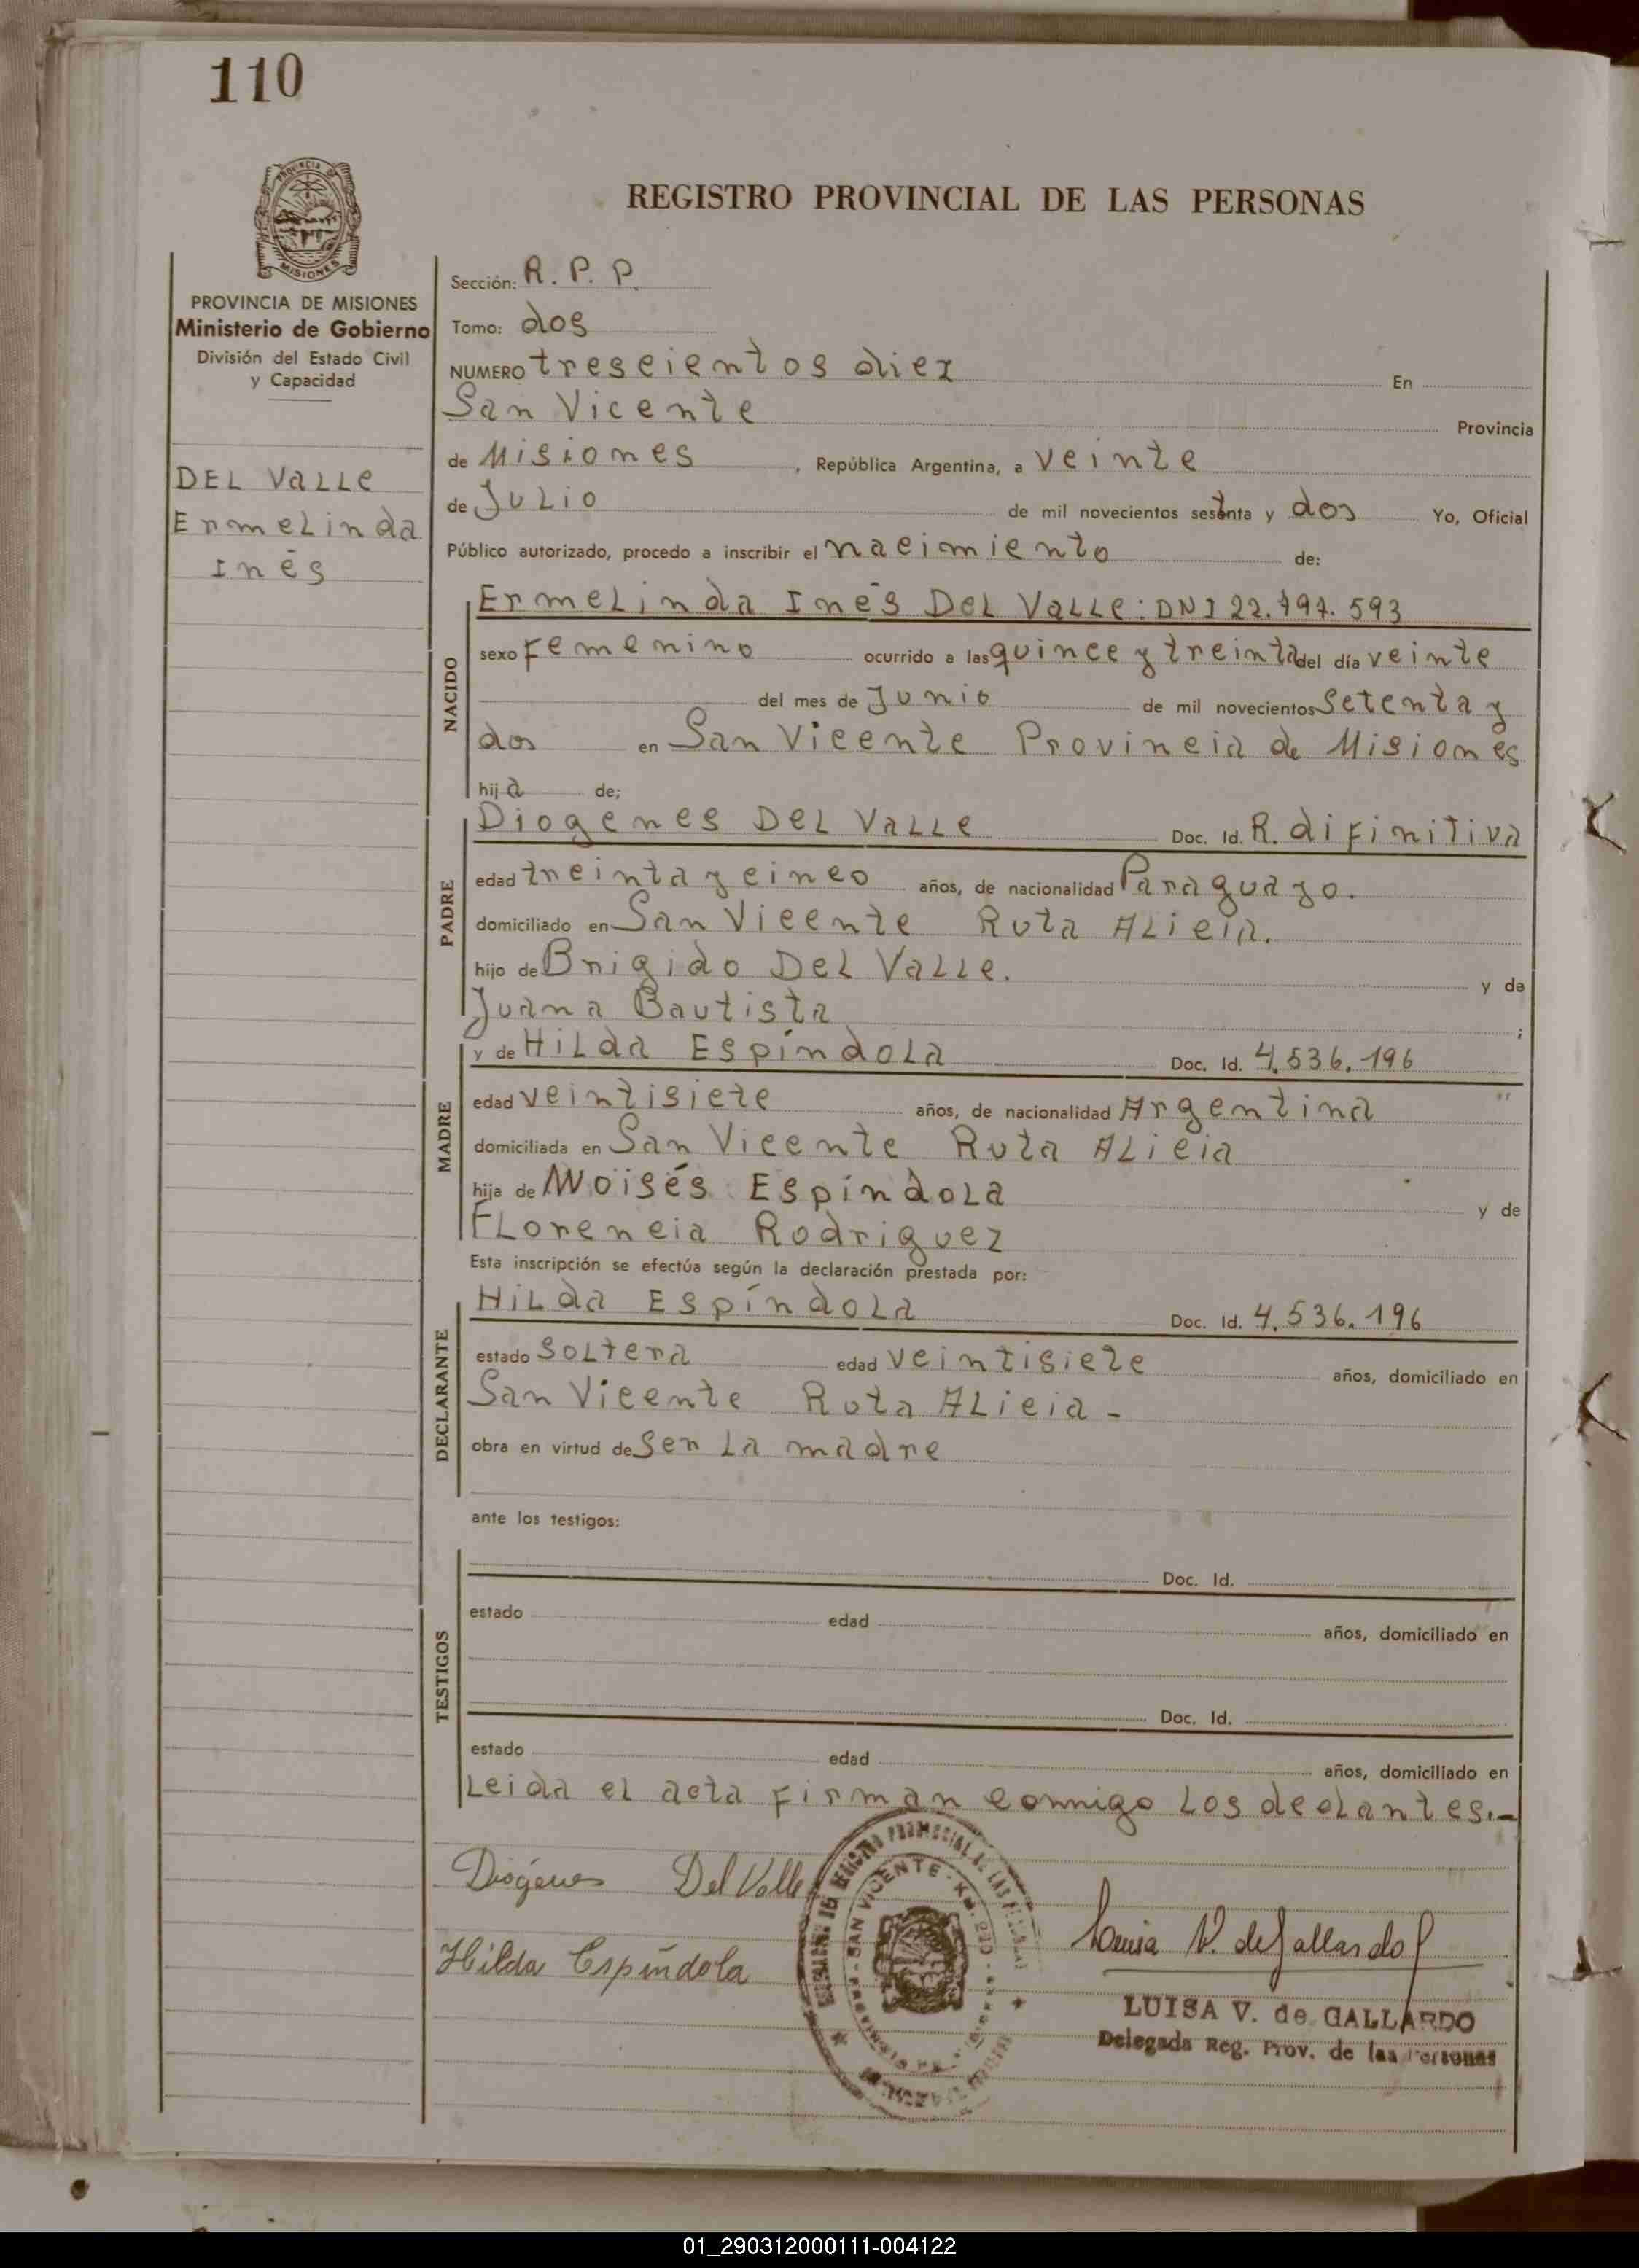 110
REGISTRO PROVINCIAL DE LAS PERSONAS
PROVINCIA DE MISIONES
Ministerio de Gobierno
División del Estado Civil
y Capacidad
DEL VALLE
Ermelinda
Inés
Sección: R. P. P.
Tomo: dos
NUMERO trescientos diez En
San Vicente Provincia
de Misiones, República Argentina, a veinte
de Julio de mil novecientos sesenta y dos Yo, Oficial
Público autorizado, procedo a inscribir el nacimiento de:
NACIDO
Ermelinda Inés Del Valle: DNI 22.797.593
sexo femenino ocurrido a las quince y treinta del día veinte
del mes de Junio de mil novecientos Setenta y
dos en San Vicente Provincia de Misiones
hija de;
PADRE
Diogenes Del Valle Doc. Id. R. difinitiva
edad treinta y cinco años, de nacionalidad Paraguayo.
domiciliado en San Vicente Ruta Alicia.
hijo de Brigido Del Valle. y de
Juana Bautista ;
MADRE
y de Hilda Espíndola Doc. Id. 4.536.196
edad veintisiete años, de nacionalidad Argentina
domiciliada en San Vicente Ruta Alicia
hija de Moisés Espíndola y de
Florencia Rodriguez
Esta inscripción se efectúa según la declaración prestada por:
DECLARANTE
Hilda Espíndola Doc. Id. 4.536.196
estado soltera edad veintisiete años, domiciliado en
San Vicente Ruta Alicia -
obra en virtud de ser la madre
ante los testigos:
TESTIGOS
Doc. Id.
estado edad años, domiciliado en
Doc. Id.
estado edad años, domiciliado en
Leida el acta firman conmigo los declantes.-
Diógenes Del Valle
Hilda Espíndola
SAN VICENTE
Luisa V. de Gallardo
LUISA V. de GALLARDO
Delegada Reg. Prov. de las Personas
01_290312000111-004122